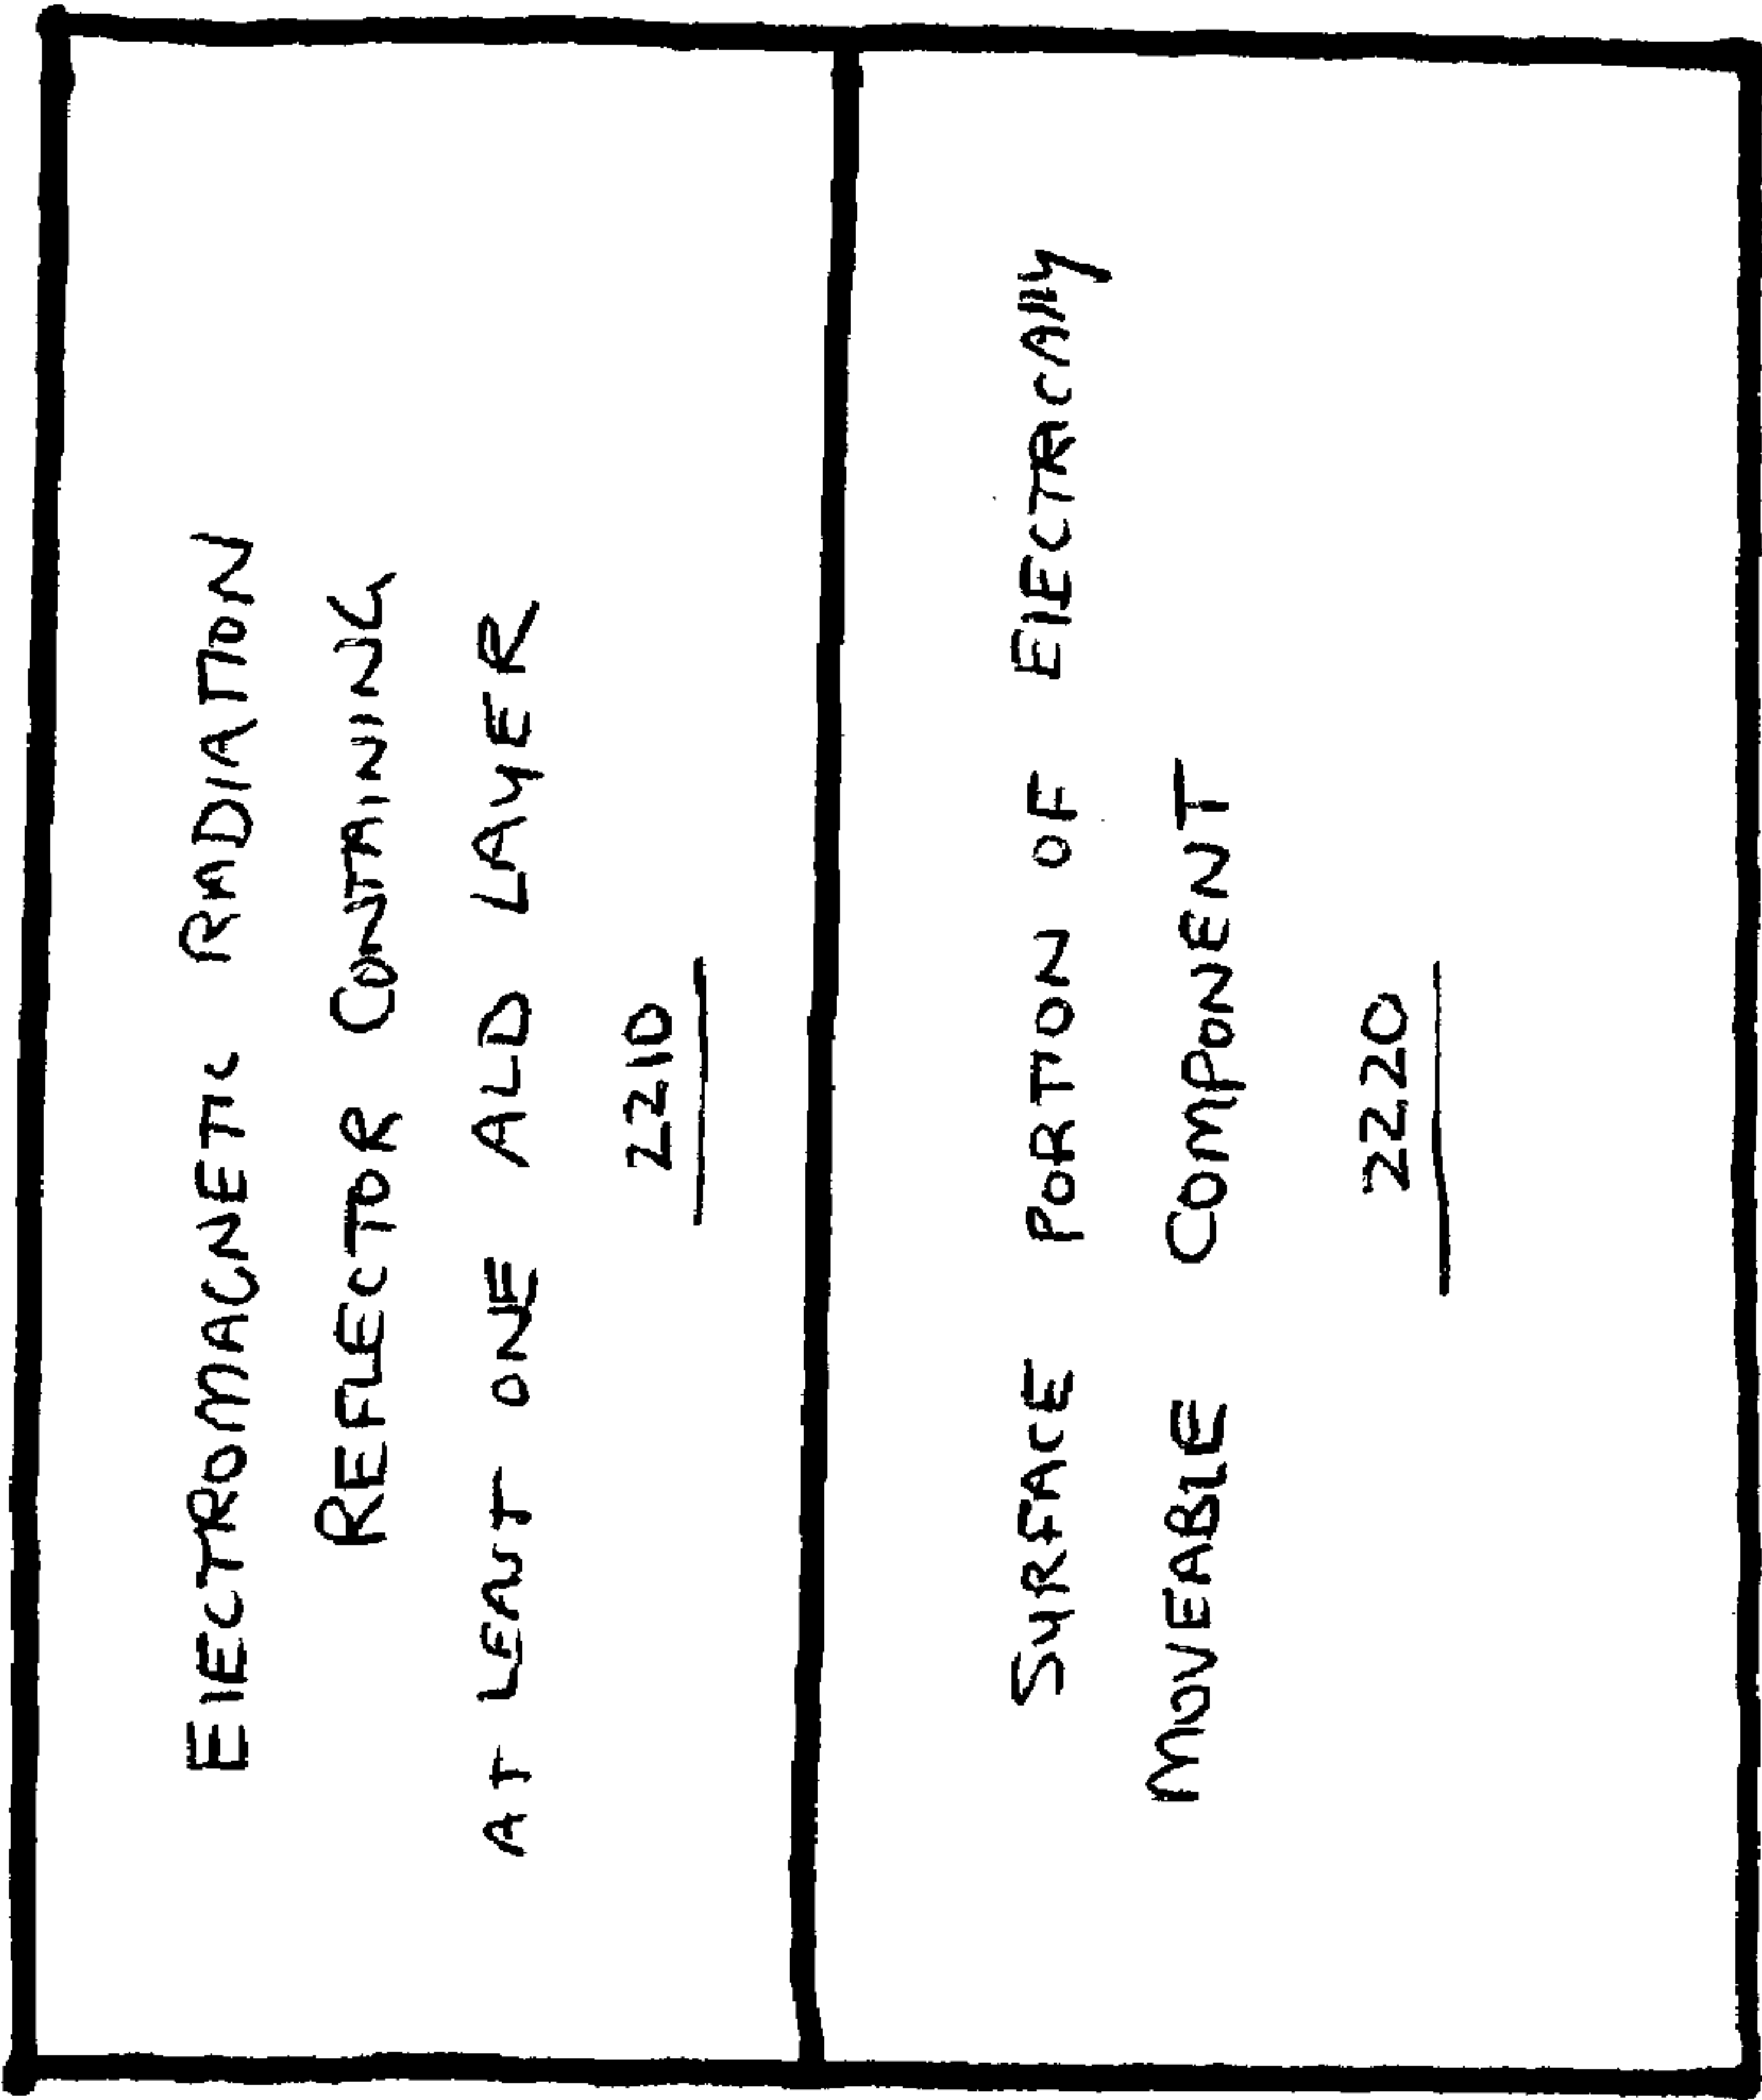 ElECTROMAGNETIC RADIATION
REFLECTOR CONTAINING
AT LEAST ONE ALD LAYER
2210
SURFACE PORTION OF ElECTRICAlly
MOVEABLE COMPONENT
2220